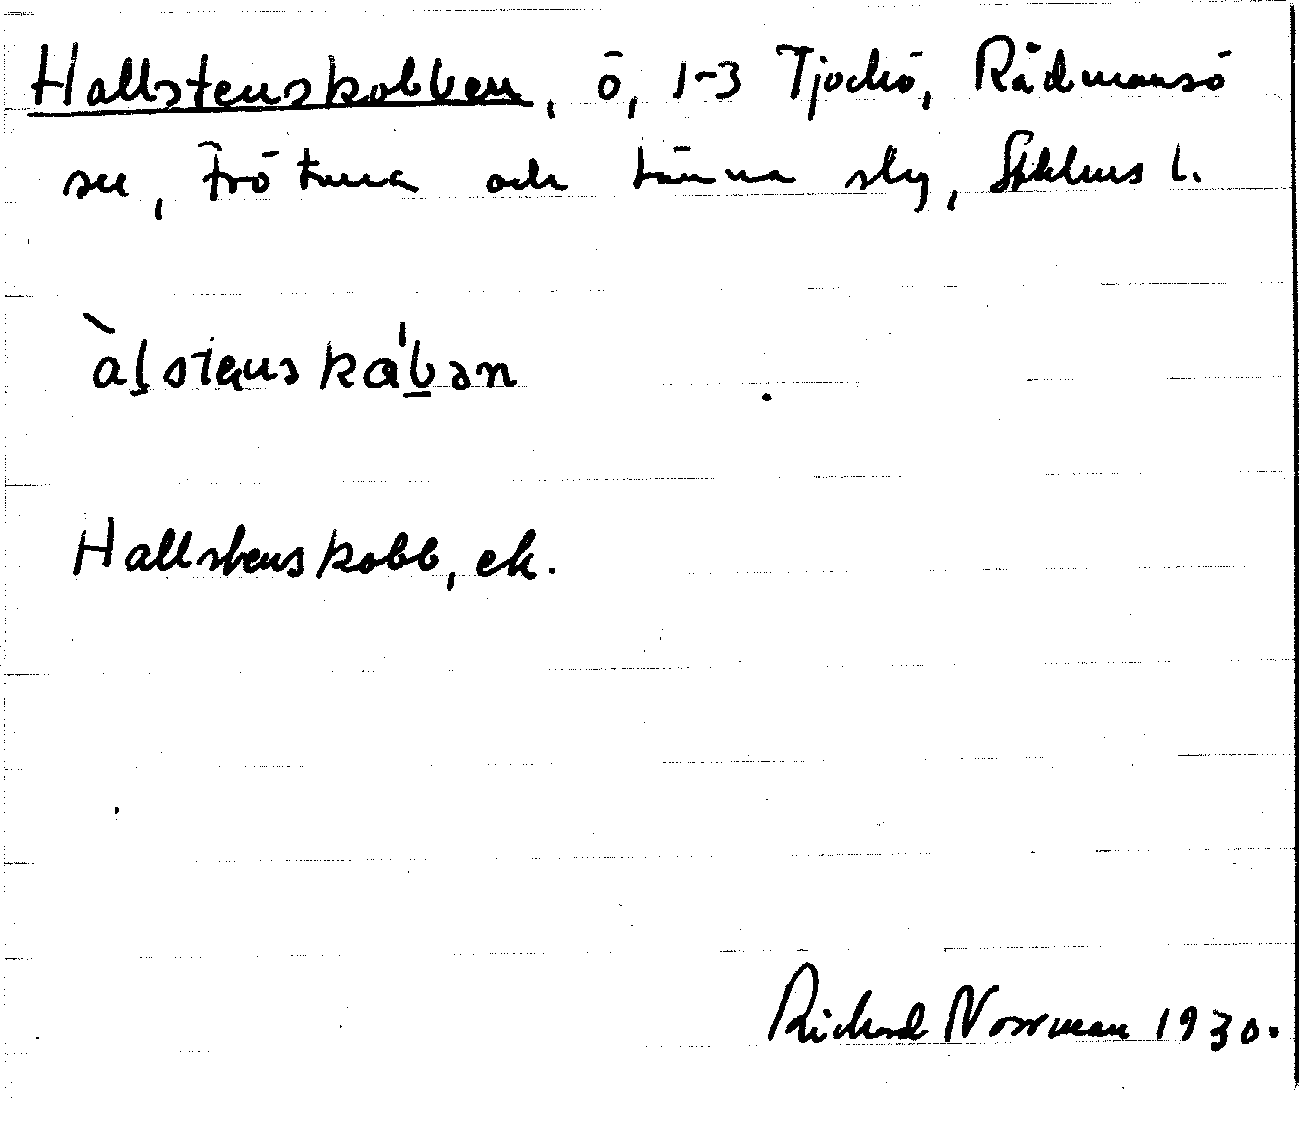 Hallstenskobben, ö, 1-3 Tjockö, Rådmansö
sn, Frötuna och Länna slg, Sthlms l.
àlstenskå'ban
Hallstenskobb, ek.
Richard Norrman 1930.